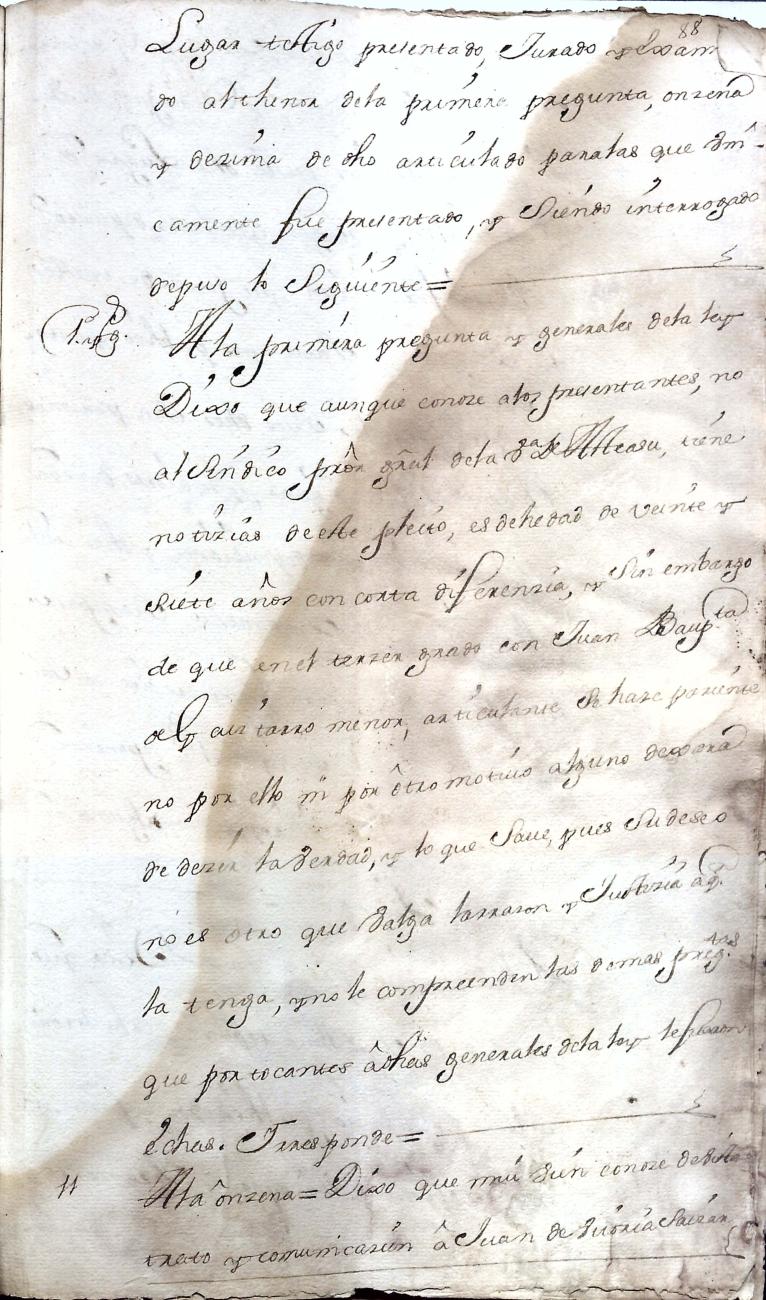 88
Lugar testigo presentado, Jurado y Exam
do althenor dela primera pregunta, onzena
y dezima de dho articulado paralas que Vni-
camente fue presentado, y Siendo interrogado
depuso lo Siguiente=
1.ª preg.
Ala primera pregunta y generales dela ley
Dixo que aunque conoze alos presentantes, no
al Sindico prôr grâl dela
tiene
notizias de este pleito, es dehedad de veinte y
Siete años con corta diferenzia, y Sin embargo
de que enel terzer grado con Juan Baupta
menor, articulante Se haze pariente
no por ello ni por ôtro motivo alguno dexara
de dezir la Verdad, y lo que Save, pues Su deseo
no es otro que Valga larrazon y Justizia aq.
la tenga, y no le compreenden las demas preg.tas
que por tocantes âdhas generales dela ley lefueron
êchas. Yrresponde=
11
Ala ônzena= Dixo que mui vien conoze de
trato y comunicazion â Juan de